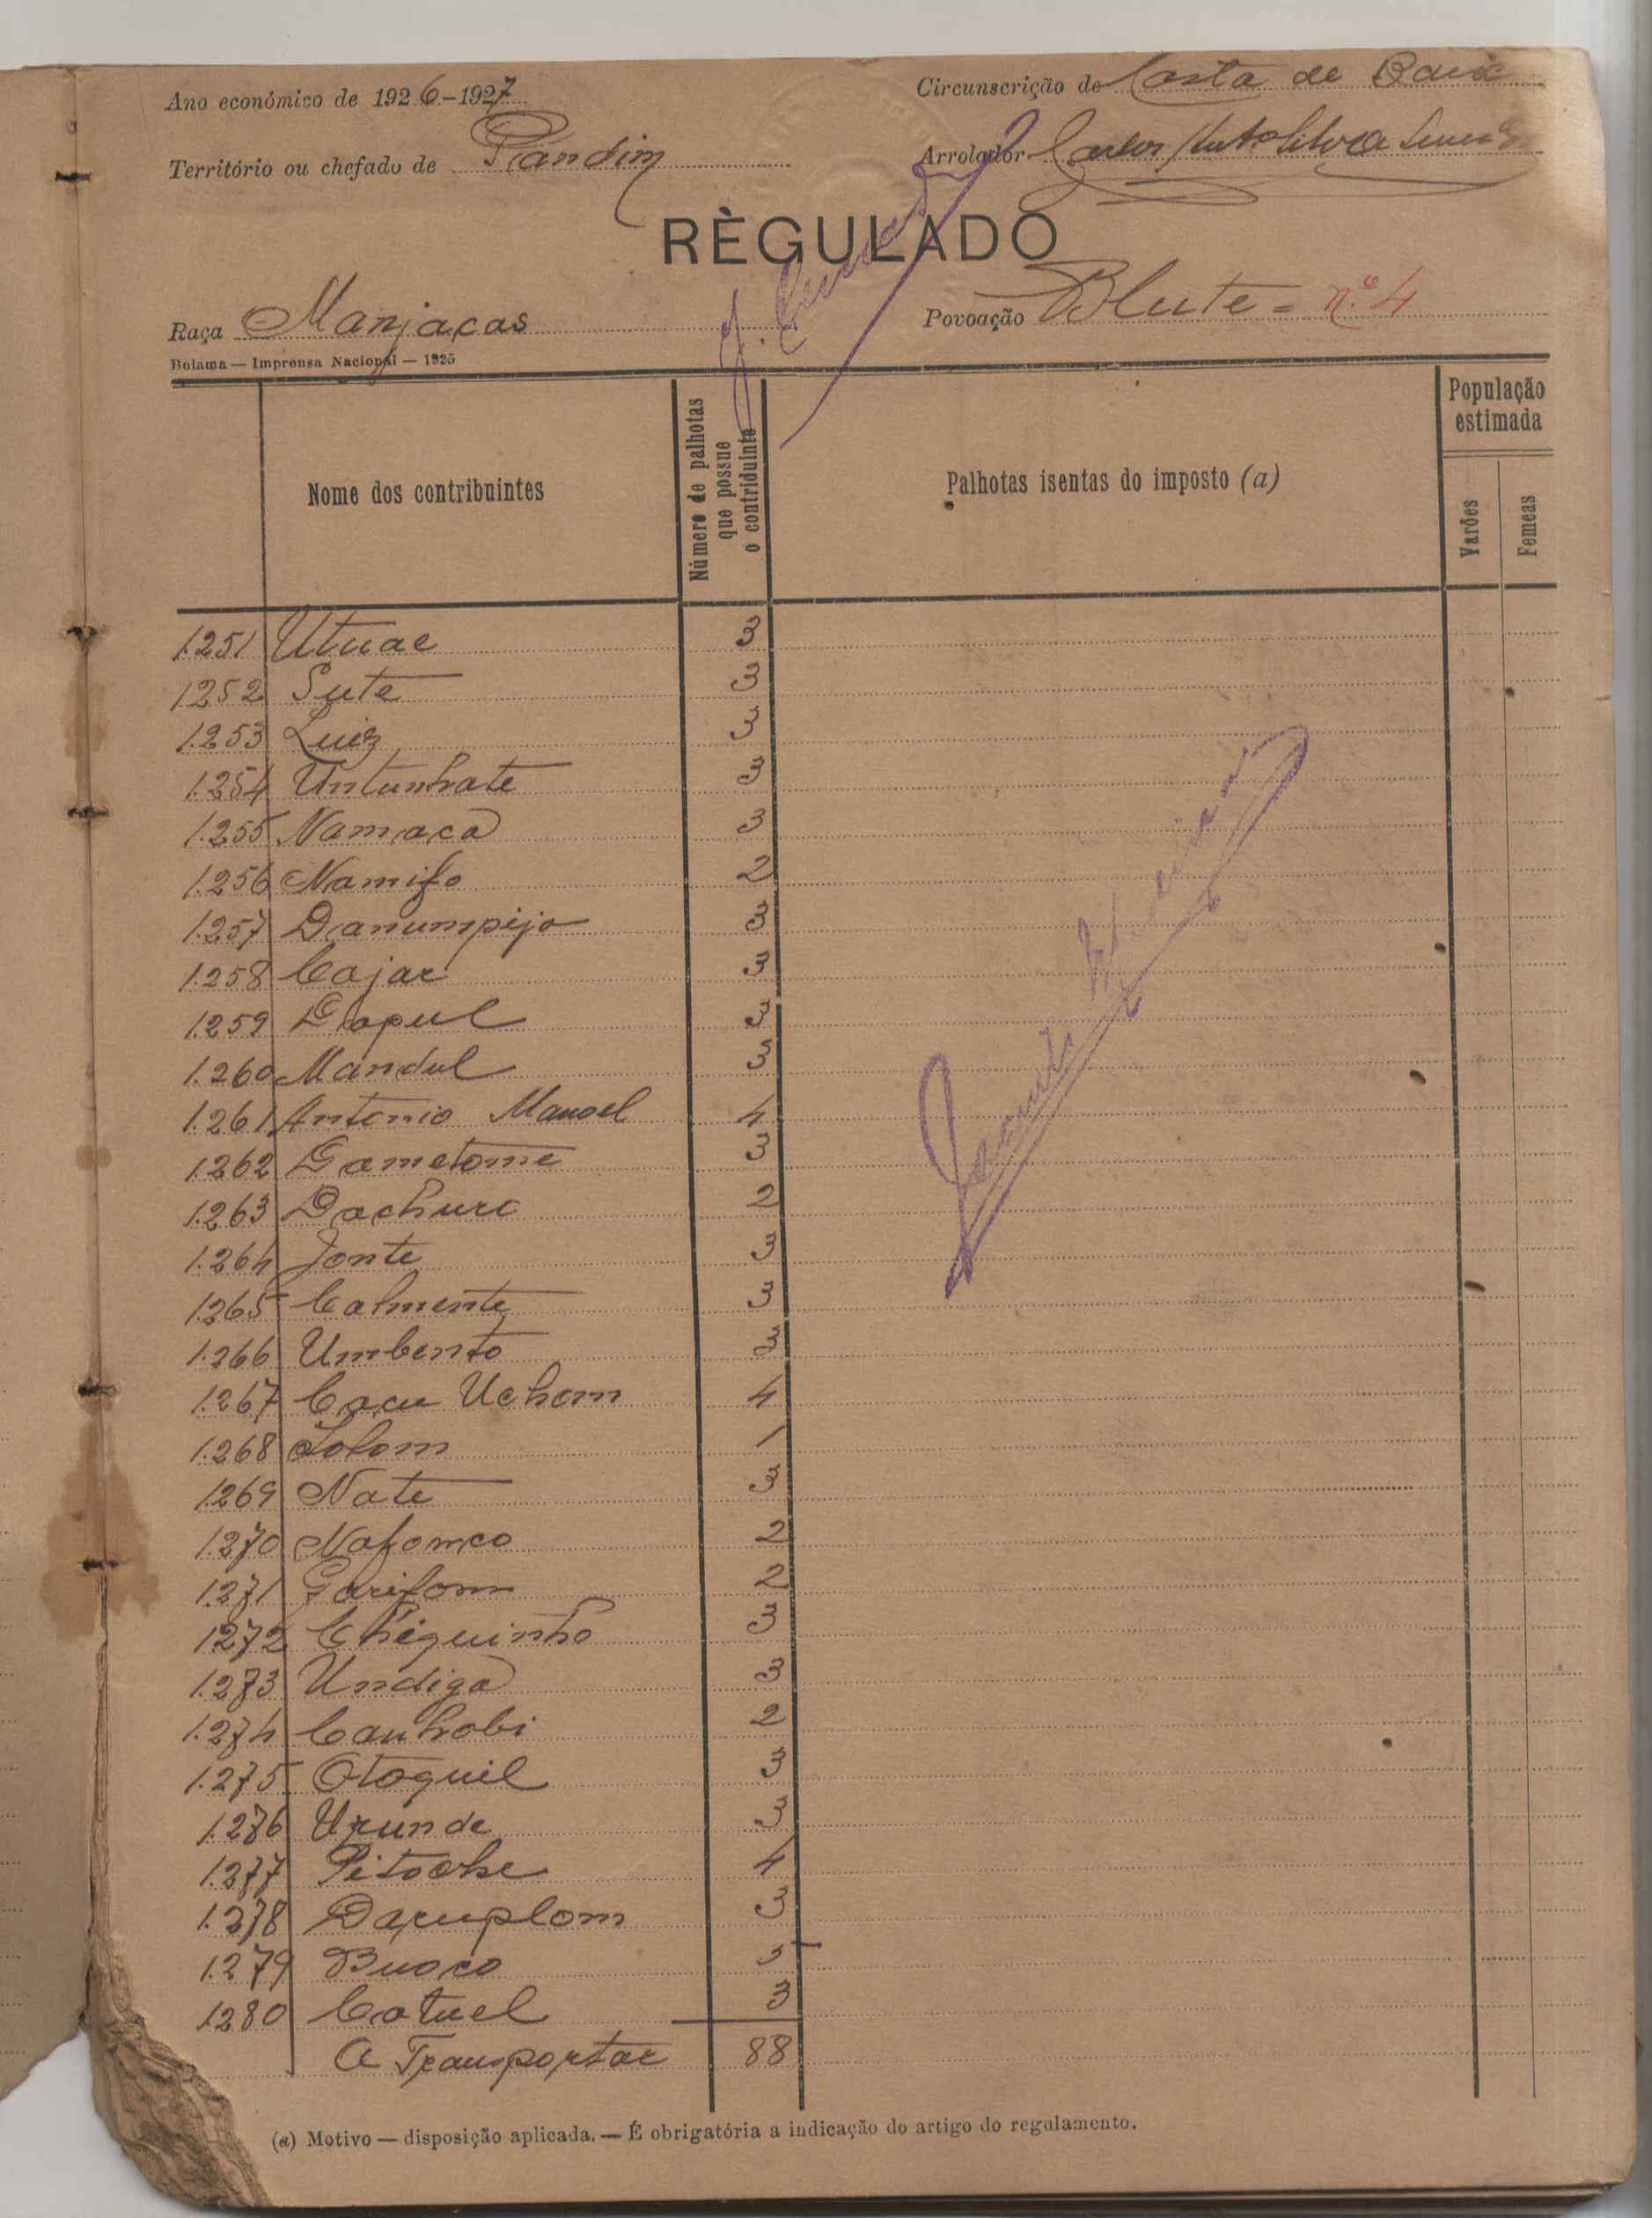 Ano económico de 1926-1927 Circunscrição de Costa de Baixo
Território ou chefado de Pandim Arrolador Carlos
RÈGULADO
Raça Manjacas Povoação Blute = n.º 4
Bolama — Imprensa Nacional — 1925
Nome dos contribuintes
Número de palhotas que possue o contriduinte
Palhotas isentas do imposto (a)
População estimada
Varões
Femeas
1.251 Utuac 3
1252 Sute 3
1.253 Luiz 3
1.254 Untunhate 3
1.255 Namaca 3
1.256 Namifo 2
1.257 Danumpijo 3
1.258 Cajar 3
1.259 Dapul 3
1.260 Mandul 3
1.261 Antonio Manoel 4
1.262 Gametome 3
1.263 Dachuro 2
1.264 Jonte 3
1.265 Calmente 3
1.266 Umbento 3
1.267 Cacu Uchom 4
1.268 Lolom 1
1.269 Nate 3
1.270 Nafomco 2
1.271 Garifom 2
1272 Chiquinho 3
1.273 Undiga 3
1.274 Canhobi 2
1.275 Otoquil 3
1.276 Urunde 3
1.277 Pitoche 4
1.278 Daruplom 3
1.279 Buoco 5
1280 Catuel 3
A Transportar 88
(a) Motivo — disposição aplicada. — É obrigatória a indicação do artigo do regulamento.